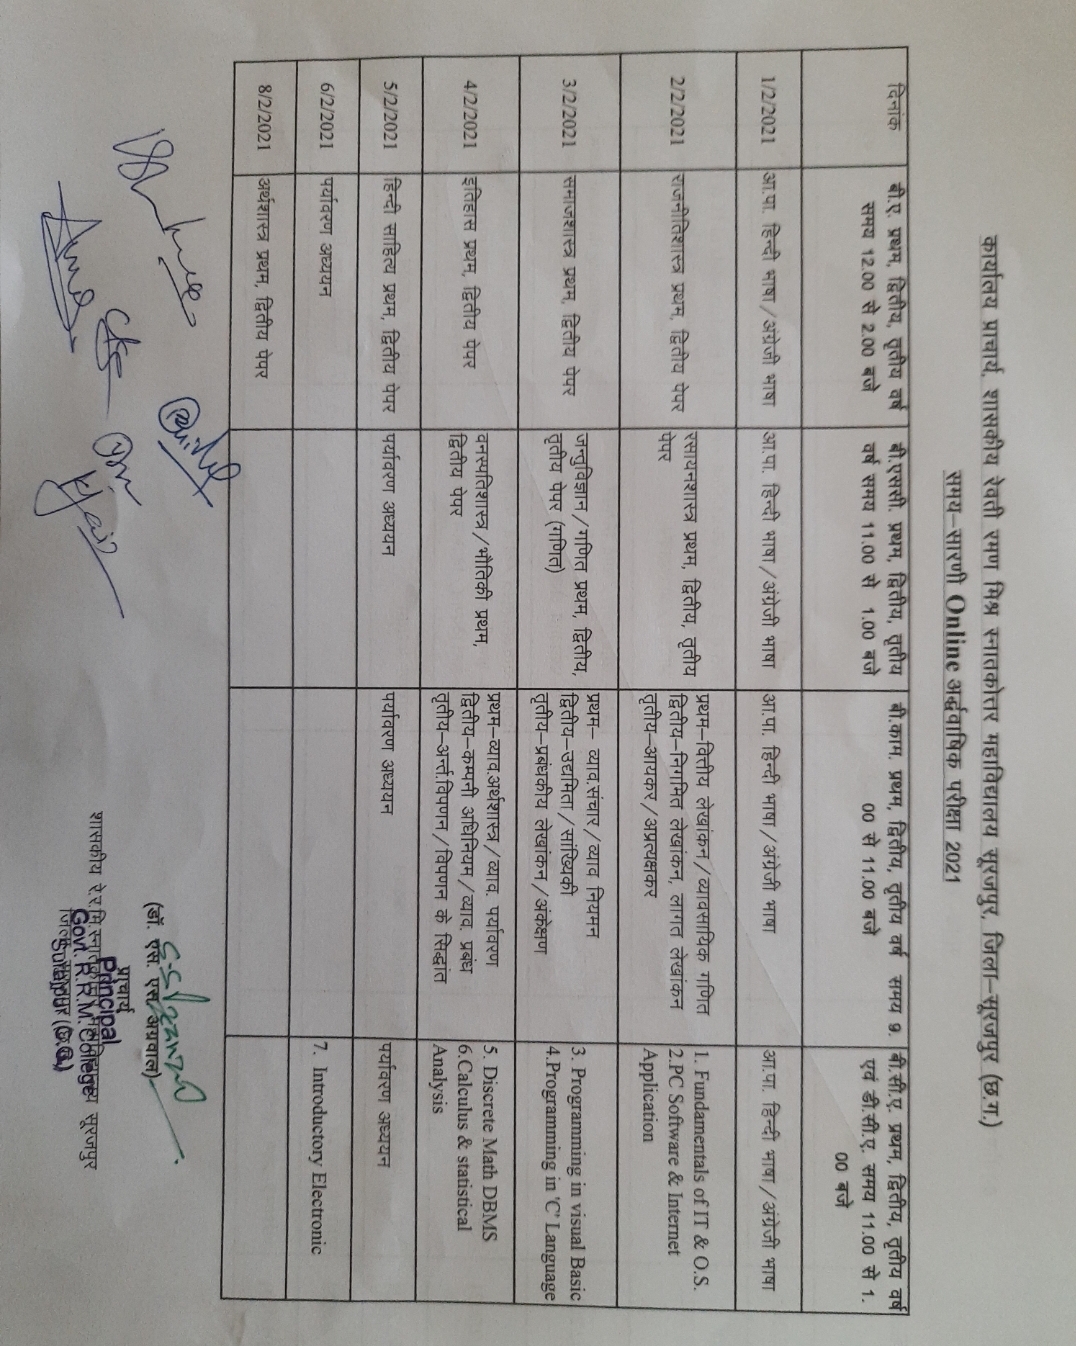 कार्यालय प्राचार्य, शासकीय रेवती रमण मिश्र स्नातकोत्तर महाविद्यालय सूरजपुर, जिला–सूरजपुर (छ.ग.)
समय–सारणी Online अर्द्धवार्षिक परीक्षा 2021
दिनांक
बी.ए. प्रथम, द्वितीय, तृतीय वर्ष
समय 12.00 से 2.00 बजे
बी.एससी. प्रथम, द्वितीय, तृतीय
वर्ष समय 11.00 से 1.00 बजे
बी.काम. प्रथम, द्वितीय, तृतीय वर्ष समय 9.
00 से 11.00 बजे
बी.सी.ए. प्रथम, द्वितीय, तृतीय वर्ष
एवं डी.सी.ए. समय 11.00 से 1.
00 बजे
1/2/2021
आ.पा. हिन्दी भाषा/अंग्रेजी भाषा
आ.पा. हिन्दी भाषा/अंग्रेजी भाषा
आ.पा. हिन्दी भाषा/अंग्रेजी भाषा
आ.पा. हिन्दी भाषा/अंग्रेजी भाषा
2/2/2021
राजनीतिशास्त्र प्रथम, द्वितीय पेपर
रसायनशास्त्र प्रथम, द्वितीय, तृतीय
पेपर
प्रथम–वित्तीय लेखांकन/व्यावसायिक गणित
द्वितीय–निगमित लेखांकन, लागत लेखांकन
तृतीय–आयकर/अप्रत्यक्षकर
1. Fundamentals of IT & O.S.
2.PC Software & Internet
Application
3/2/2021
समाजशास्त्र प्रथम, द्वितीय पेपर
जन्तुविज्ञान/गणित प्रथम, द्वितीय,
तृतीय पेपर (गणित)
प्रथम– व्याव.संचार/व्याव नियमन
द्वितीय–उद्यमिता/सांख्यिकी
तृतीय–प्रबंधकीय लेखांकन/अंकेक्षण
3. Programming in visual Basic
4.Programming in 'C' Language
4/2/2021
इतिहास प्रथम, द्वितीय पेपर
वनस्पतिशास्त्र/भौतिकी प्रथम,
द्वितीय पेपर
प्रथम–व्याव.अर्थशास्त्र/व्याव. पर्यावरण
द्वितीय–कम्पनी अधिनियम/व्याव. प्रबंध
तृतीय–अर्न्त.विपणन/विपणन के सिद्धांत
5. Discrete Math DBMS
6.Calculus & statistical
Analysis
5/2/2021
हिन्दी साहित्य प्रथम, द्वितीय पेपर
पर्यावरण अध्ययन
पर्यावरण अध्ययन
पर्यावरण अध्ययन
6/2/2021
पर्यावरण अध्ययन
7. Introductory Electronic
8/2/2021
अर्थशास्त्र प्रथम, द्वितीय पेपर
(डॉ. एस. एस. अग्रवाल)
प्राचार्य
Principal
शासकीय रे.र.मि.स्नातकोत्तर महाविद्यालय सूरजपुर
Govt. R.R.M. College
Surajpur (C.G.)